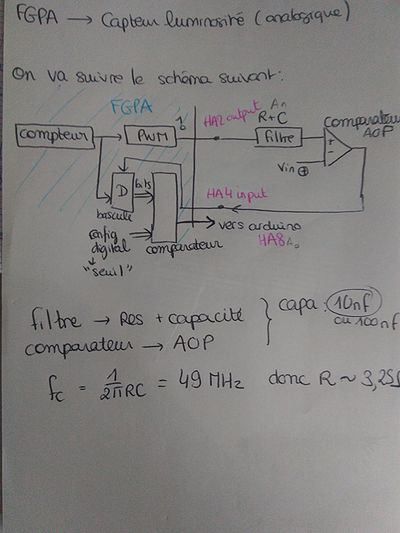 FGPA → Capteur luminosité (analogique)
On va suivre le schéma suivant:
FGPA
compteur
PWM
1
HA2 output
An
R+C
Filtre
comparateur
AOP
+
-
Vin +
D
bits
bascule
HA4 input
vers arduino
HA8 A0
config
digital
"seuil"
comparateur
filtre → Res + capacité
comparateur → AOP
capa: 10nf
ou 100nf
fc = 1/2πRC = 49 MHz donc R ~ 3,25Ω